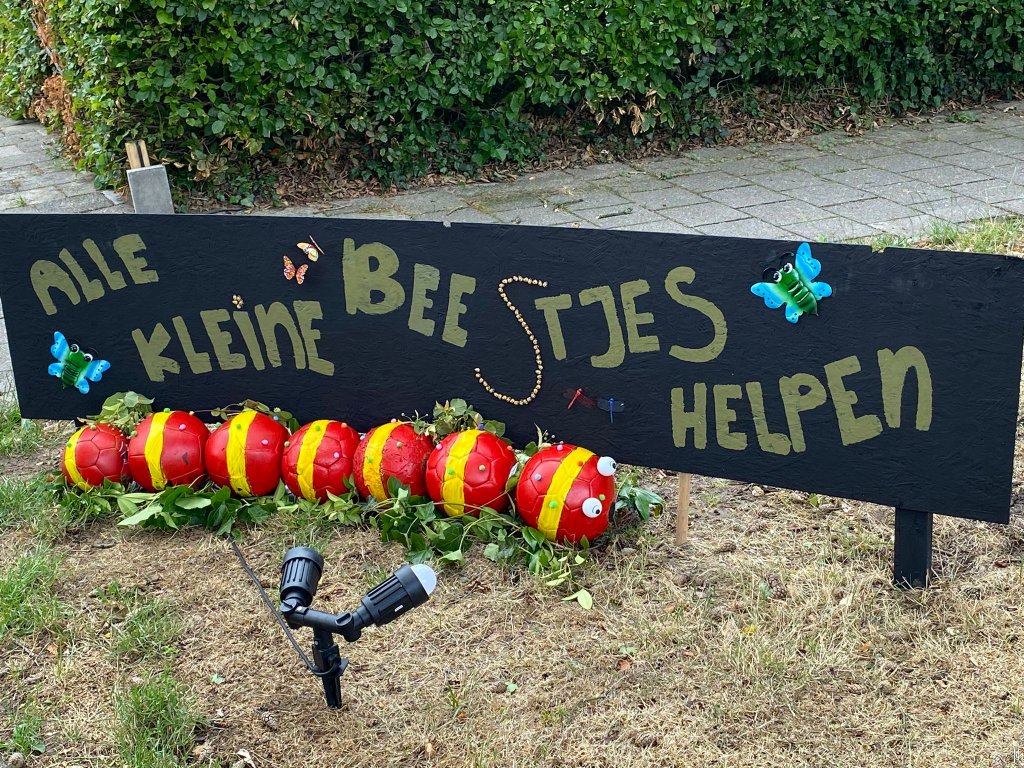 ALLE
KLEINE
BEESTJES
HELPEN